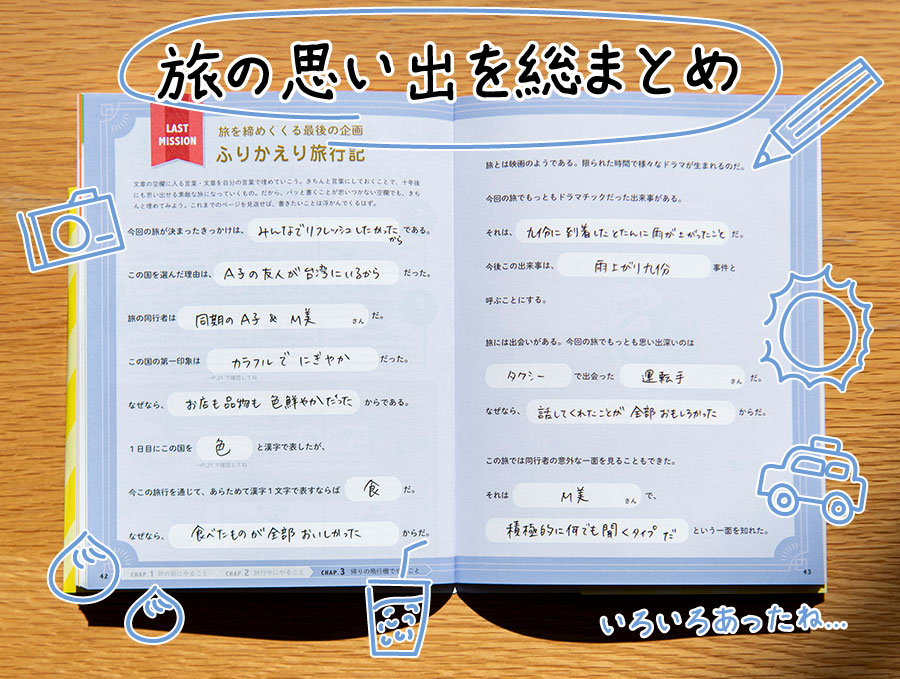 旅の思い出を総まとめ
LAST
MISSION
旅を締めくくる最後の企画
ふりかえり旅行記
文章の空欄に入る言葉・文章を自分の言葉で埋めていこう。きちんと言葉にしておくことで、十年後
にも思い出せる素敵な旅になっていくもの。だから、パッと書くことが思いつかない空欄でも、きち
んと埋めてみよう。これまでのページを見返せば、書きたいことは浮かんでくるはず。
今回の旅が決まったきっかけは、 みんなでリフレッシュしたかったから である。
この国を選んだ理由は、 A子の友人が台湾にいるから だった。
旅の同行者は 同期のA子 & M美 さん だ。
この国の第一印象は カラフルで にぎやか だった。
→P.21で確認してね
なぜなら、 お店も品物も 色鮮やかだった からである。
1日目にこの国を 色 と漢字で表したが、
→P.21で確認してね
今この旅行を通じて、あらためて漢字1文字で表すならば 食 だ。
なぜなら、 食べたものが全部 おいしかった からだ。
42 CHAP.1 旅の前にやること CHAP.2 旅行中にやること CHAP.3 帰りの飛行機でやること
旅とは映画のようである。限られた時間で様々なドラマが生まれるのだ。
今回の旅でもっともドラマチックだった出来事がある。
それは、 九份に到着したとたんに雨が上がったこと だ。
今後この出来事は、 雨上がり九份 事件と
呼ぶことにする。
旅には出会いがある。今回の旅でもっとも思い出深いのは
タクシー で出会った 運転手 さん だ。
なぜなら、 話してくれたことが 全部 おもしろかった からだ。
この旅では同行者の意外な一面を見ることもできた。
それは M美 さん で、
積極的に何でも聞くタイプだ という一面を知れた。
43
いろいろあったね…